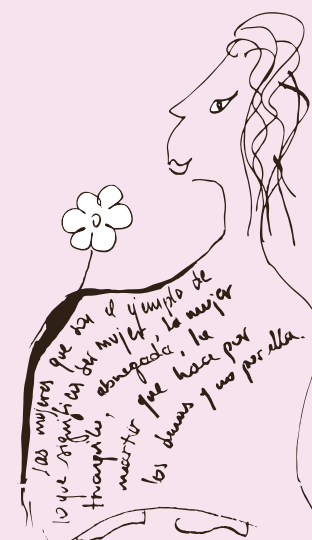 las mujeres que son el ejemplo de
lo que significa ser mujer, la mujer
tranquila, abnegada, la
martir que hace por
los demas y no por ella.